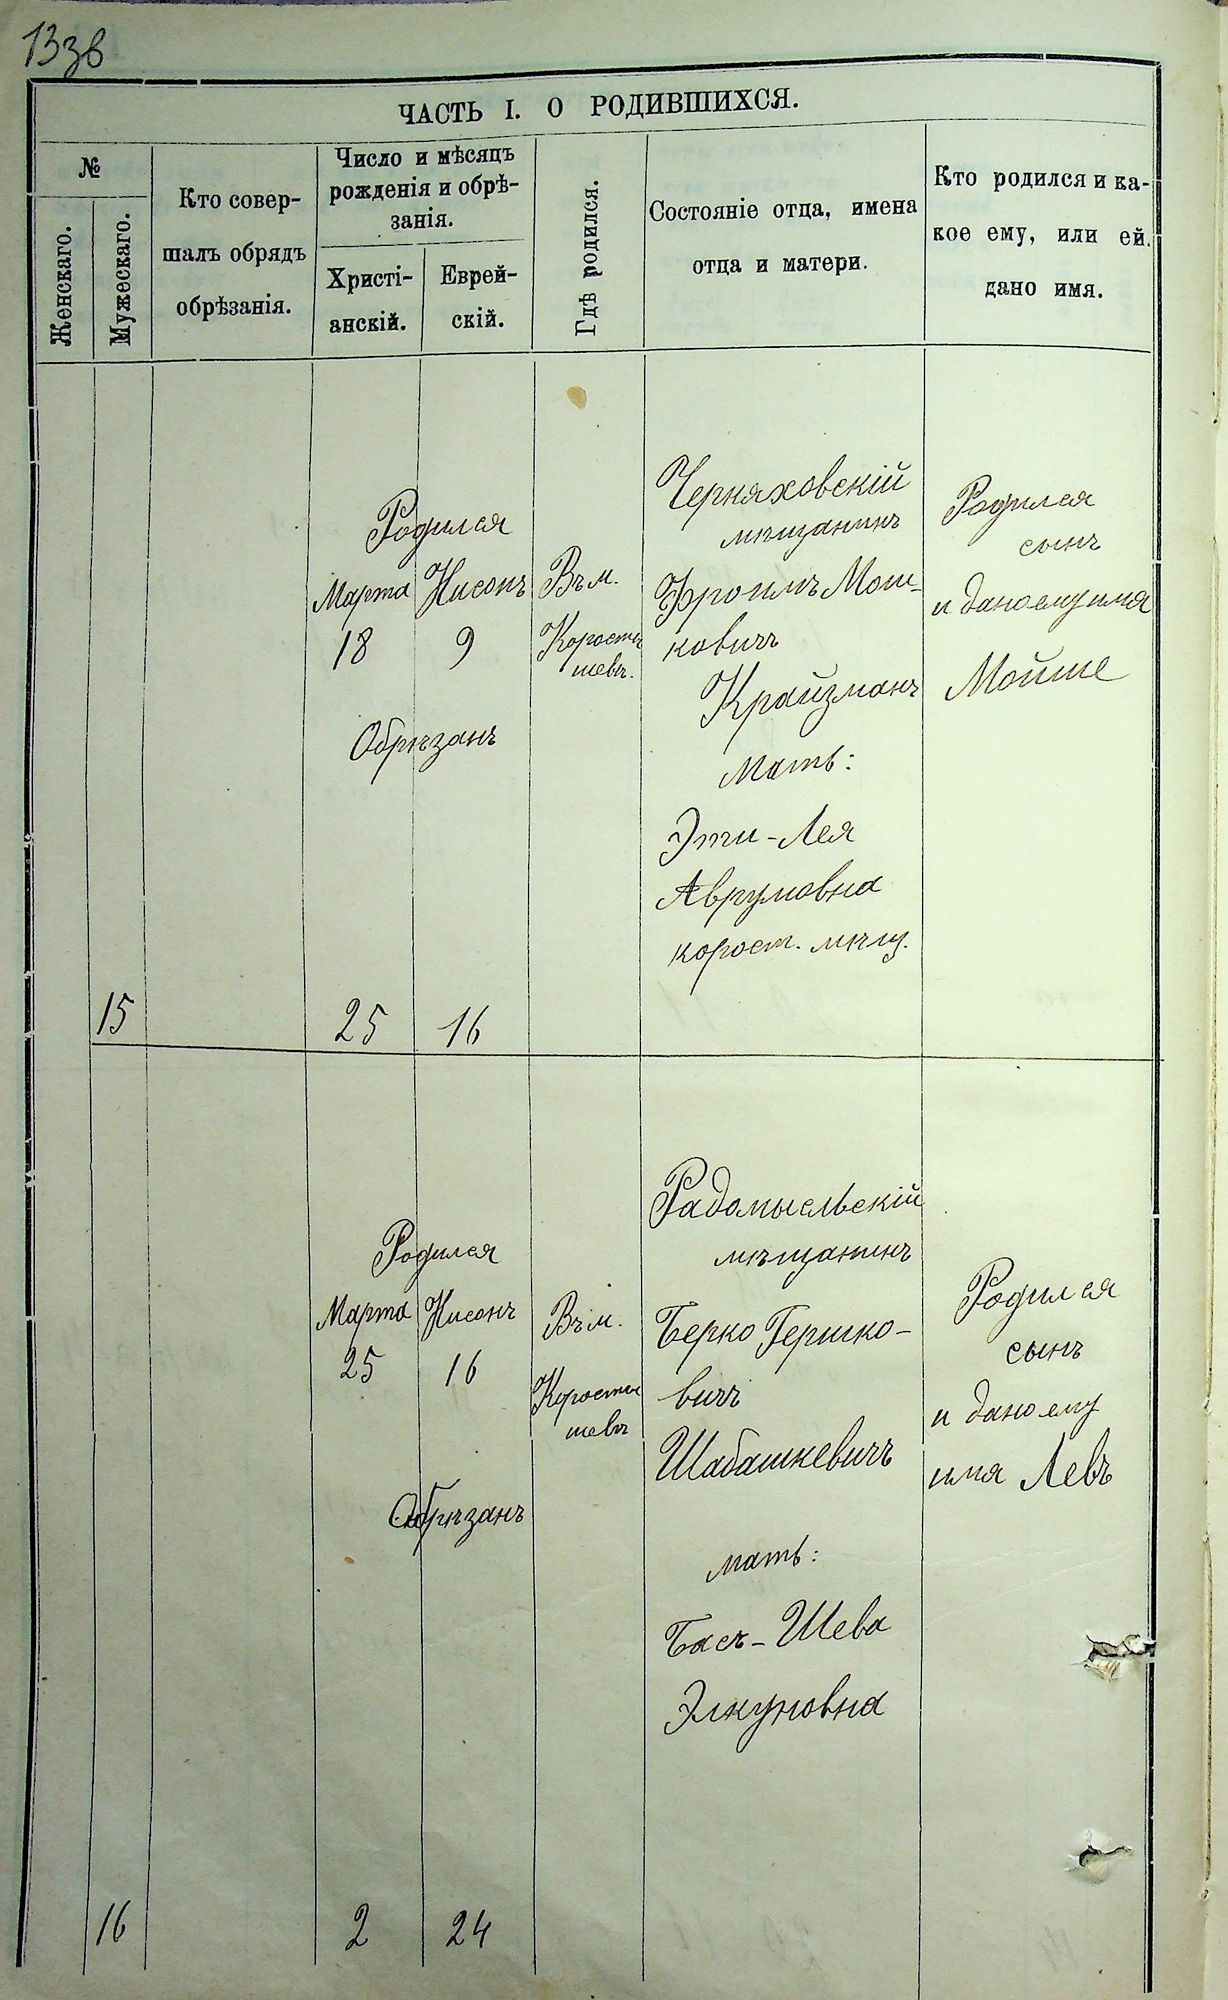 133в
ЧАСТЬ I. О РОДИВШИХСЯ.
№
Женскаго.
Мужескаго.
Кто совер-
шалъ обрядъ
обрѣзанія.
Число и мѣсяцъ
рожденія и обрѣ-
занія.
Христі-
анскій.
Еврей-
скій.
Гдѣ родился.
Состояніе отца, имена
отца и матери.
Кто родился и ка-
кое ему, или ей.
дано имя.
15
Родился
Марта Нисонъ
18 9
Обрѣзанъ
25 16
Въ м.
Коросты
шевъ.
Черняховскій
мѣщанинъ
Фроимъ Мош-
ковичъ
Крайзманъ
Мать:
Эти-Лея
Аврумовна
корост. мѣщ.
Родился
сынъ
и дано ему имя
Мойше
16
Родился
Марта Нисонъ
25 16
Обрѣзанъ
2 24
Въ м.
Коросты
шевъ
Радомысльскій
мѣщанинъ
Берко Гершко-
вичъ
Шабашкевичъ
мать:
Бася-Шева
Элкуновна
Родился
сынъ
и дано ему
имя Левъ